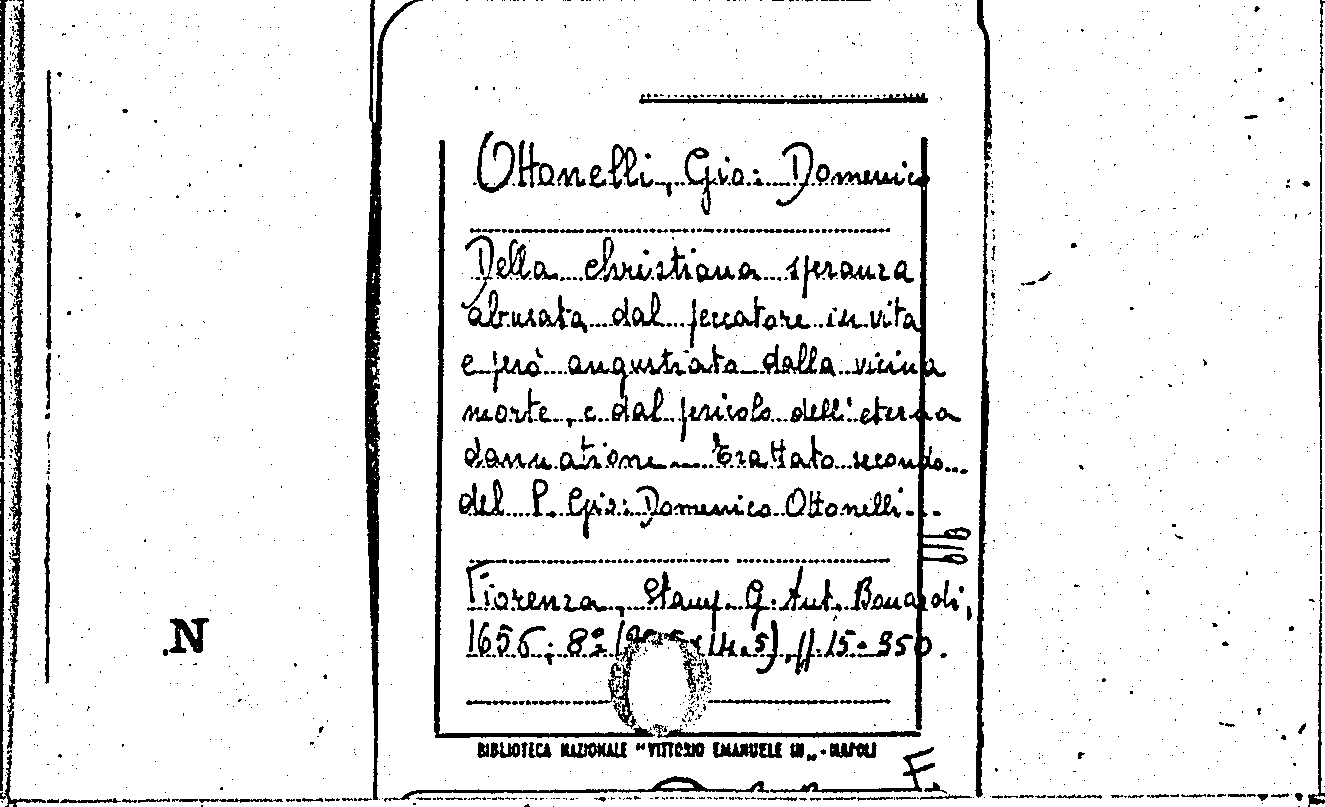 Ottonelli, Gio: Domenico
Della christiana speranza
abusata dal peccatore in vita
e però angustiata dalla vicina
morte, e dal pericolo dell'eterna
dannatione... Trattato secondo...
del P. Gio: Domenico Ottonelli...
Fiorenza, Stamp. G. Ant. Bonardi,
1656; 8º 14.5), pp. 15-350.
N
BIBLIOTECA NAZIONALE "VITTORIO EMANUELE III„ - NAPOLI